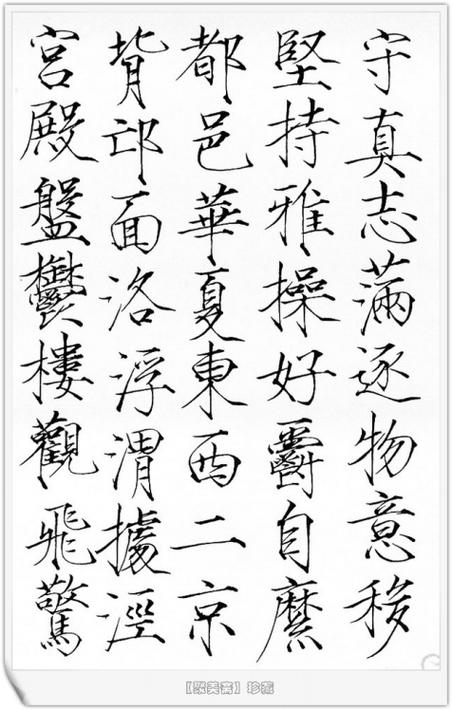 守真志滿逐物意移
堅持雅操好爵自縻
都邑華夏東西二京
背邙面洛浮渭據涇
宮殿盤鬱樓觀飛驚
【聚美斋】珍藏